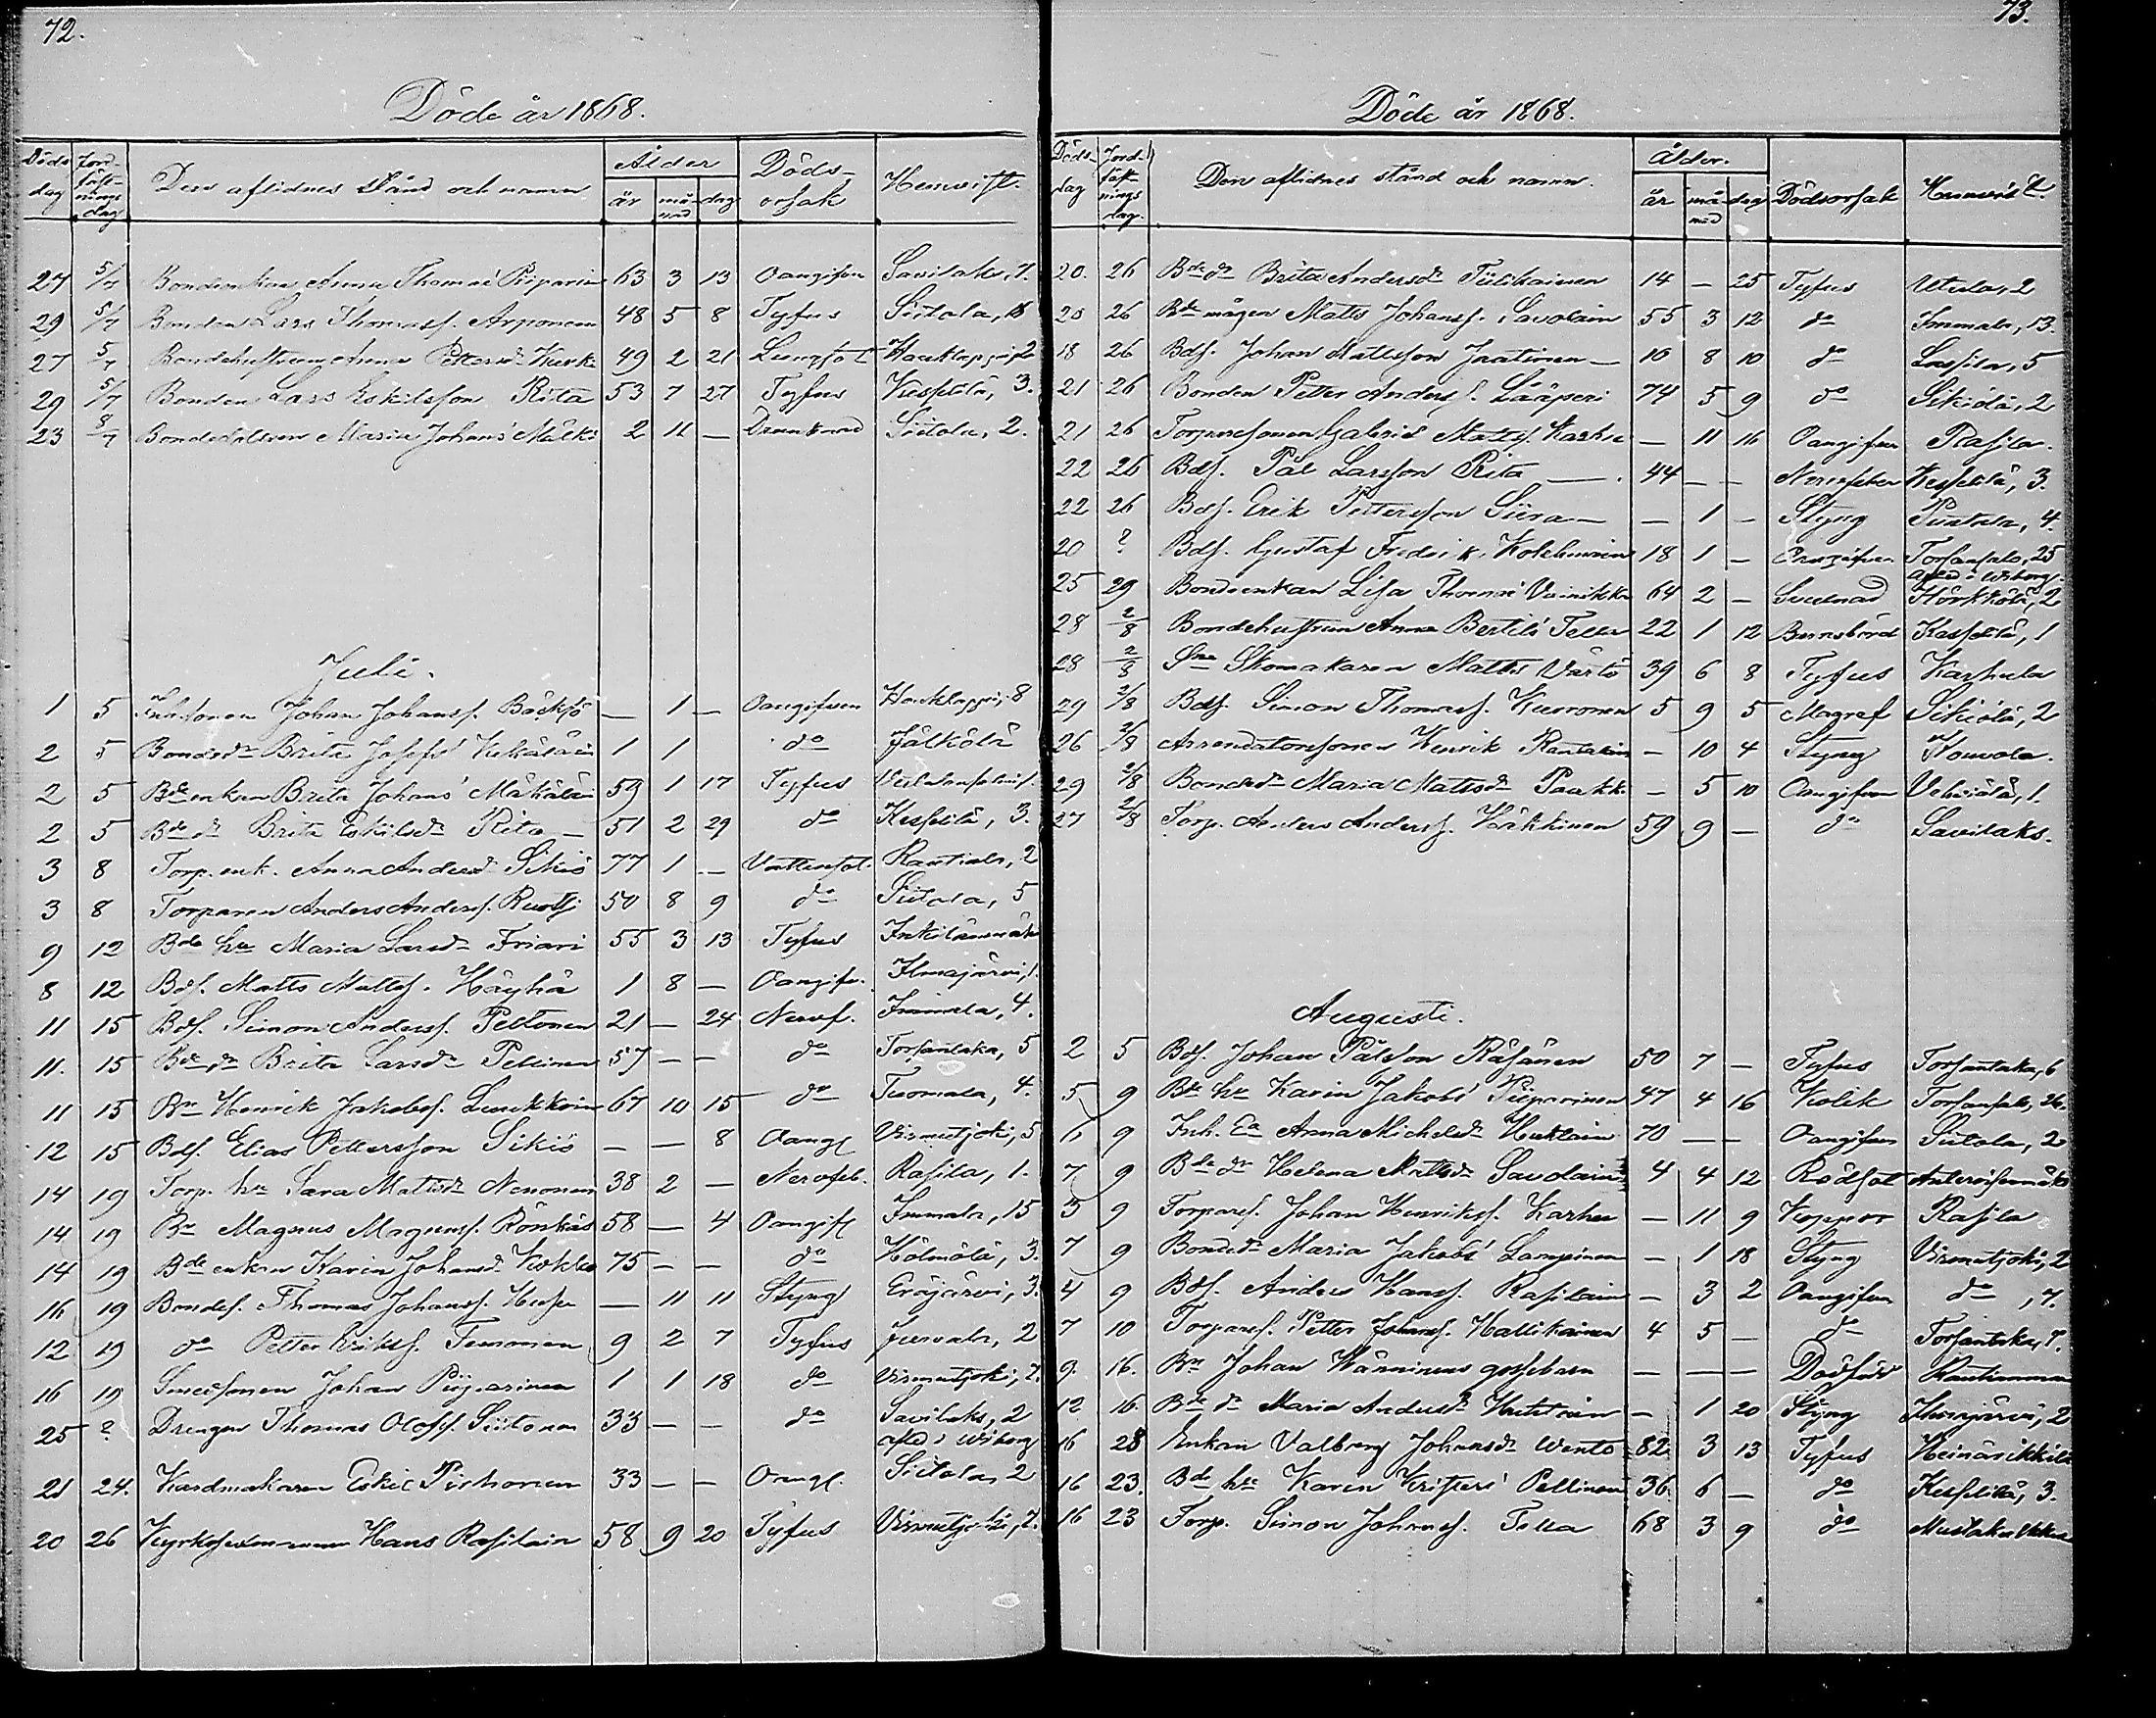 72.
Döde år 1868.
Döds dag | Jordfästnings dag | Den aflidnes stånd och namn | Ålder år månad dag | Dödsorsak | Hemvist.
27 5/7 Bondenkan Anna Thomæ Piiparin 63 3 13 Oangifven Savilaks, 7.
29 5/7 Bonden Lars Thomass. Arponen 48 5 8 Tyfus Siitola,
27 5/7 Bondehustrun Anna Pettersd. 49 2 21 Lungsot
29 5/7 Bonden Lars Eskilsson Rita 53 7 27 Tyfus Kesselilä, 3.
23 8/7 Bondedottren Maria Johans' Mälki 2 11 — Drunknad Siitola, 2.
Julii.
1 5 Johan Johanss. — 1 — Oangifven 8
2 5 Bonded. Brita Josefs' 1 1 do Jälkölä
2 5 Bde enkan Brita Johans' Mäkäläin 59 1 17 Tyfus
2 5 Bde dr Brita Eskilsdr Rita — 51 2 29 do Kesselilä, 3.
3 8 Torp. enk. Anna Andersd. Sikiö 77 1 — Vattensot. Rautiala, 2
3 8 Torparen Anders Anderss. 50 8 9 do Siitola, 5
9 12 Bde hu Maria Larsdr 55 3 13 Tyfus
8 12 Bds. Matts Mattss. Häyhä 1 8 — Oangifv. Ilmajärvi, 1.
11 15 Bds. Simon Anderss. Peltonen 21 — 24 Nervf. Immala, 4.
11. 15 Bde dr Brita Larsdr Pellinen 57 — — do Torsantaka, 5
11 15 Bn Henrik Jakobss. 67 10 15 do Tuomala, 4.
12 15 Bds. Elias Pettersson Sikiö — — 8 Oangf Virmutjoki, 5
14 19 Torp. hu Sara Mattsdr Nenonen 38 2 — Nervfeb. Rasila, 1.
14 19 Bn Magnus Magnuss. 58 — 4 Oangif Immala, 15
14 19 Bde enkan Karin Johansdr 75 — — do Hölmölä, 3.
16 19 Bondes. Thomas Johanss. — 11 11 Styng Eräjärvi, 3.
12 19 do Petter Erikss. 9 2 7 Tyfus Juvala, 2
16 19 Smedsonen Johan Piiparinen 1 1 18 do Virmutjoki, 7.
25 ? Drengen Thomas Olofss. Siitonen 33 — — do Savilaks, 2
afled i Wiborg
21 24. Kardmakaren Eskil Pirhonen 33 — — Oangf. Siitola, 2
20 26 Hans Rasilain 58 9 20 Tyfus Virmutjoki, 7.
73.
Döde år 1868.
Döds-dag | Jordfästnings dag. | Den aflidnes stånd och namn. | Ålder. år månad dag | Dödsorsak | Hemvist.
20. 26 Bde dr Brita Andersdr Tiilikainen 14 — 25 Tyfus Utula, 2
20 26 Bde mågen Matts Johanss. Savolain 55 3 12 do Immala, 13.
18 26 Bds. Johan Mattsson Jaatinen — 10 8 10 do Lassila, 5
21 26 Bonden Petter Anderss. Lääperi 74 5 9 do Sikiölä, 2
21 26 Torparesonen Gabriel Mattss. Karhu — 11 16 Oangifven Rasila.
22 26 Bds. Pål Larsson Rita — 44 — — Nervfeber Kesselilä, 3.
22 26 Bds. Erik Pettersson Siira — — 1 — Styng Puntala, 4.
20 ? Bds. Gustaf Fredrik Kolehmain 18 1 — Oangifven Torsansalo, 25
afled i Wiborg.
25 29 Bondeenkan Lisa Thomæ Vainikka 64 2 — Svullnad Härkkölä, 2
28 2/8 Bondehustrun Anna Bertils' Tella 22 1 12 Barnsbörd Kesselilä, 1
28 2/8 Skomakaren Matts Värtö 39 6 8 Tyfus Karhula
29 2/8 Bds. Simon Thomass. Kurronen 5 9 5 Magref Sikiölä, 2
26 2/8 Arrendatorssonen Henrik Rantalain — 10 4 Styng Kouvola.
29 2/8 Bonded. Maria Mattsdr Paakk. — 5 10 Oangifven Vehviälä, 1.
27 2/8 Torp. Anders Anderss. Häkkinen 59 9 — do Savilaks.
Augusti.
2 5 Bds. Johan Pålsson Räsänen 50 7 — Tyfus Torsantaka, 6
5 9 Bde hu Karin Jakobs' Piiparinen 47 4 16 Kolik Torsansalo, 26.
6 9 Inh. Ea Anna Michelsdr 70 — — Oangifven Siitola, 2
7 9 Bde dr Helena Mattsdr Savolain 4 4 12 Rödsot
5 9 Torpares. Johan Henrikss. Karhu — 11 9 Koppor Rasila
7 9 Bonded. Maria Jakobs' Lampinen — 1 18 Styng Virmutjoki, 2
4 9 Bds. Anders Hanss. Rasilain — 3 2 Oangifven do, 7.
7 10 Torpares. Petter Johanss. Hallikainen 4 5 — do Torsantaka, 7.
9. 16. Bn Johan Hänninens gossebarn — — — Dödfödd
12 16. Bde dr Maria Andersdr — 1 20 Styng Ilmajärvi, 2
16 23 Enkan Valborg Johansdr Wento 82 3 13 Tyfus
16 23. Bde hu Karin Kristers' Pellinen 36 6 — do Kesselilä, 3.
16 23 Torp. Simon Johanss. Tella 68 3 9 do